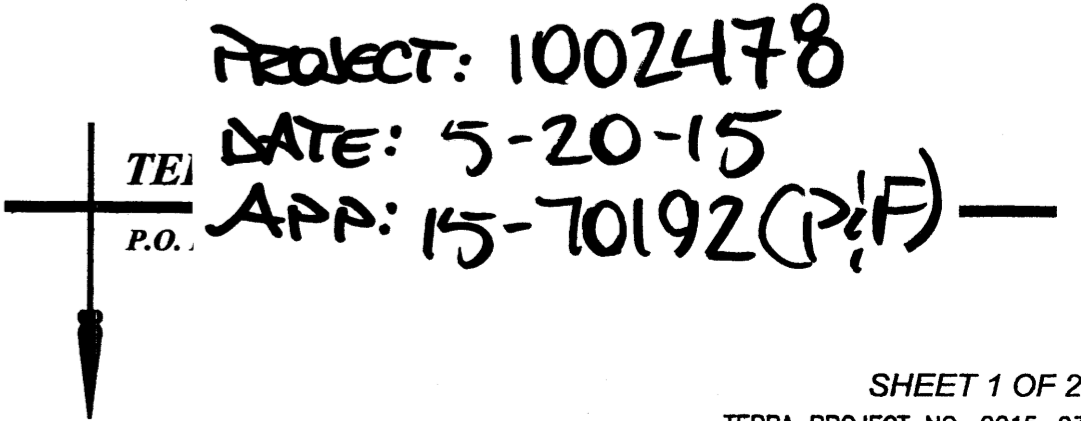 PROJECT: 1002478
DATE: 5-20-15
TER
APP: 15-70192 (P&F)
P.O.
SHEET 1 OF 2
TERRA PROJECT NO. 2015-